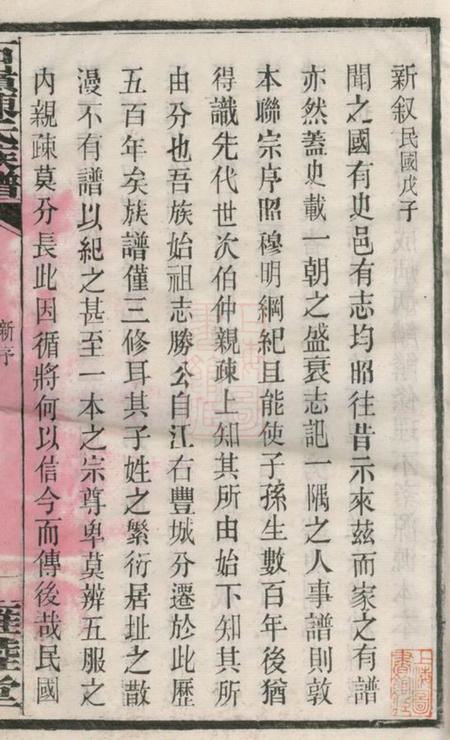 新叙民國戊子
聞之國有史邑有志均昭往昔示來茲而家之有譜
亦然蓋史載一朝之盛衰志記一隅之人事譜則敦
本聯宗序昭穆明綱紀且能使子孫生數百年後猶
得識先代世次伯仲親疎上知其所由始下知其所
由分也吾族始祖志勝公自江右豐城分遷於此歷
五百年矣族譜僅三修耳其子姓之繁衍居址之散
漫不有譜以紀之甚至一本之宗尊卑莫辨五服之
內親疎莫分長此因循將何以信今而傳後哉民國
氏族譜
新序
一
堂
上海圖書館藏